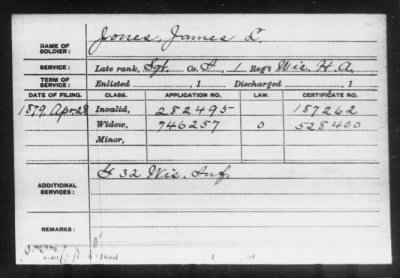 Jones, James
NAME OF SOLDIER:
SERVICE: Late rank, Sgt. Co. 1 Reg't Wis. H. A.
TERM OF SERVICE: Enlisted , 1 Discharged , 1
DATE OF FILING. CLASS. APPLICATION NO. LAW. CERTIFICATE NO.
1879, Apr. 28 Invalid, 282495 187262
Widow, 746257 528400
Minor,
ADDITIONAL SERVICES: 32 Wis. Inf.
REMARKS:
Died